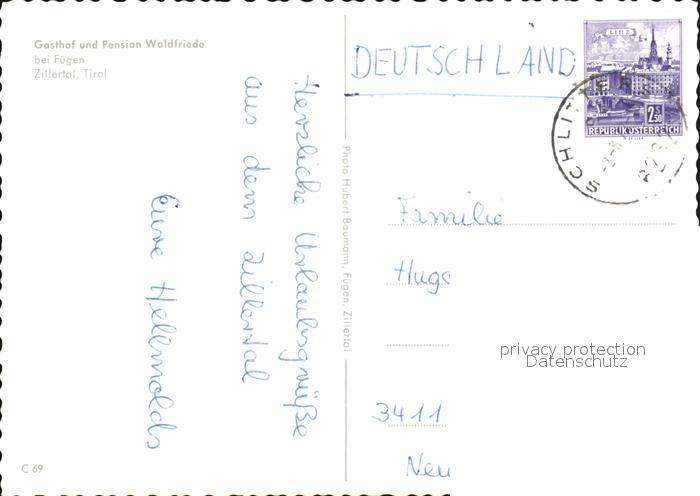 Gasthof und Pension Waldfriede
bei Fügen
Zillertal, Tirol
Herzliche Urlaubsgrüße
aus dem Zillertal
Eure Hellmolds
C 69
Photo Hubert Baumann, Fügen, Zillertal
DEUTSCHLAND
LINZ
2.50
REPUBLIK ÖSTERREICH
SCHLITTERS
Familie
Hugo
privacy protection
Datenschutz
3411
Neu